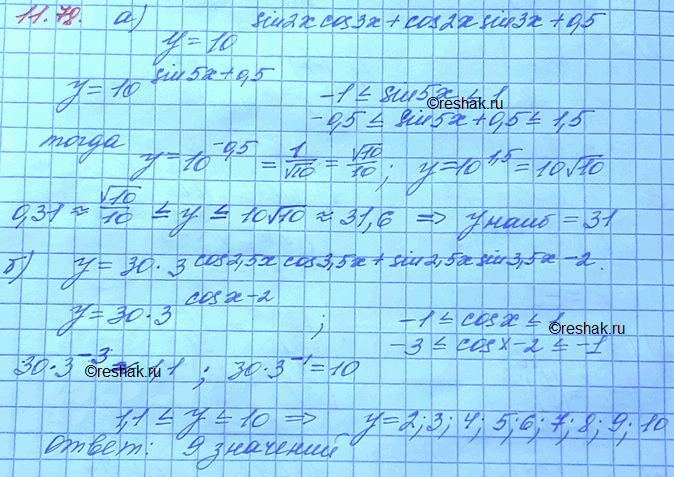 11.78. а) y = 10^(sin2x cos3x + cos2x sin3x + 0,5)
y = 10^(sin5x + 0,5)   -1 ≤ sin5x ≤ 1
©reshak.ru
-0,5 ≤ sin5x + 0,5 ≤ 1,5
тогда y = 10^(-0,5) = 1/√10 = √10/10 ; y = 10^(1,5) = 10√10
0,31 ≈ √10/10 ≤ y ≤ 10√10 ≈ 31,6 ⇒ y наиб = 31
б) y = 30 · 3^(cos2,5x cos3,5x + sin2,5x sin3,5x - 2).
y = 30 · 3^(cosx - 2) ;   -1 ≤ cosx ≤ 1
©reshak.ru
-3 ≤ cosx - 2 ≤ -1
30 · 3^(-3) ≈ 1,1 ; 30 · 3^(-1) = 10
©reshak.ru
1,1 ≤ y ≤ 10 ⇒ y = 2; 3; 4; 5; 6; 7; 8; 9; 10
Ответ: 9 значений